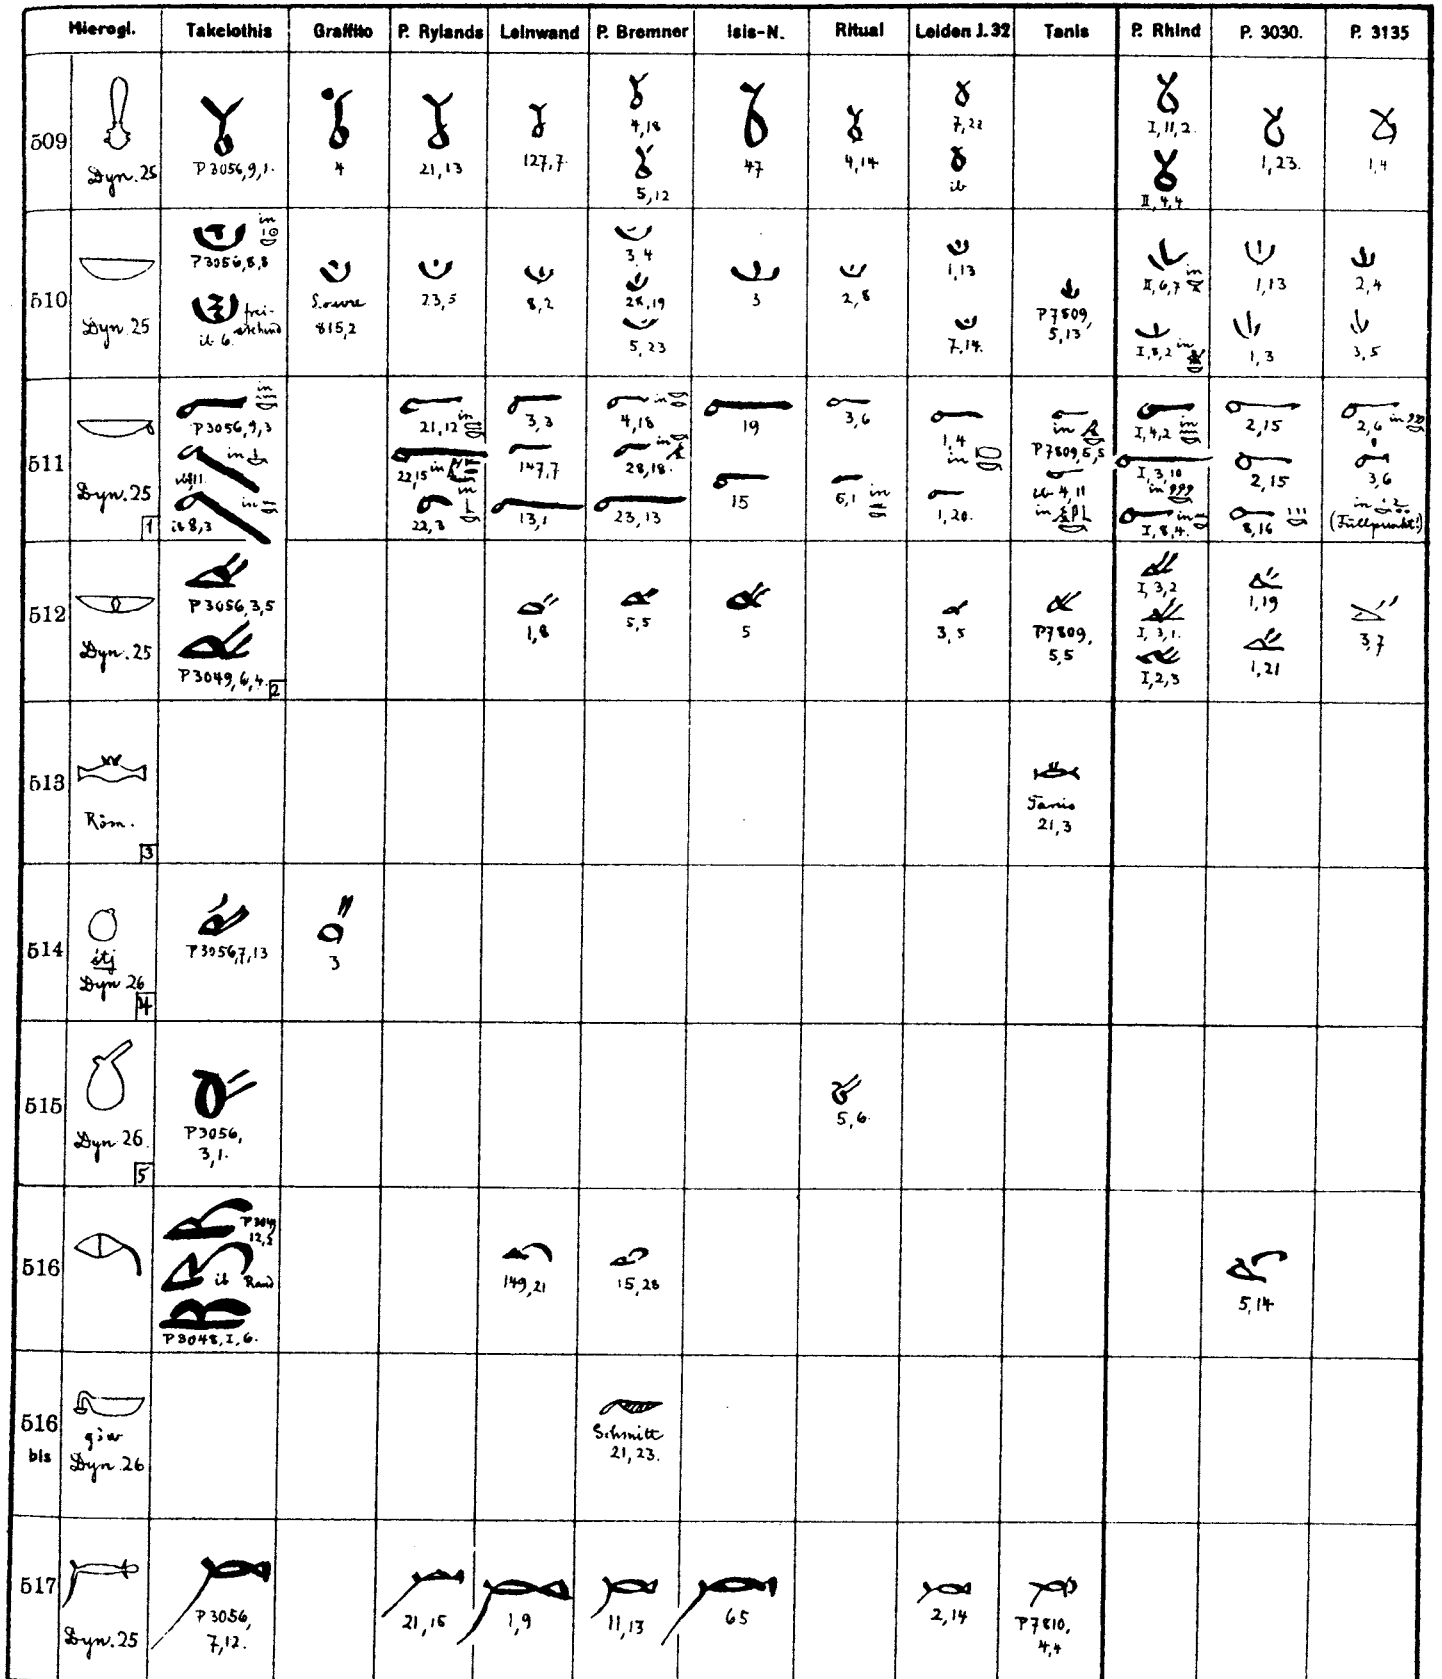 Hierogl. Takelothis Graffito P. Rylands Leinwand P. Bremner Isis-N. Ritual Leiden J.32 Tanis P. Rhind P. 3030. P. 3135
509
Dyn. 25
P 3056,9,1.
4
21,13
127,7.
4,18
5,12
47
4,14
7,22
ib
I, 11, 2.
II, 4,4
1,23.
1,4
510
Dyn. 25
in
P 3056,8,8
frei-
stehend
ib 6.
Louvre
815,2
23,5
8,2
3,4
28,19
5,23
3
2,8
1,13
7,14.
P 7809,
5,13
II, 6,7 in
I, 8,2 in
1,13
1,3
2,4
3,5
511
Dyn. 25
1
in
P 3056,9,3
in
ib 8,3 in
21,12 in
22,15 in
in
22,3
3,3
147,7
13,1
4,18 in
28,18. in
23,13
19
15
3,6
5,1 in
1,4
in
1,20.
in
P 7809,5,5
ib 4,11
in
I, 4,2 in
I, 3,10
in
I, 8,4. in
2,15
2,15
8,16
2,6 in
3,6
in
(Füllpunkt!)
512
Dyn. 25
P 3056,3,5
P 3049,6,4.
2
1,8
5,5
5
3,5
P 7809,
5,5
I, 3,2
I, 3,1.
I, 2,3
1,19
1,21
3,7
513
Röm.
3
Tanis
21,3
514
śtj
Dyn 26
4
P 3056,7,13
3
515
Dyn 26.
5
P 3056,
3,1.
5,6.
516
P 3049
12,2
ib Rand
P 3048, I, 6.
149,21
15,28
5,14
516
bis
Dyn. 26
Schmitt
21,23.
517
Dyn. 25
P 3056,
7,12.
21,15
1,9
11,13
65
2,14
P 7810,
4,4